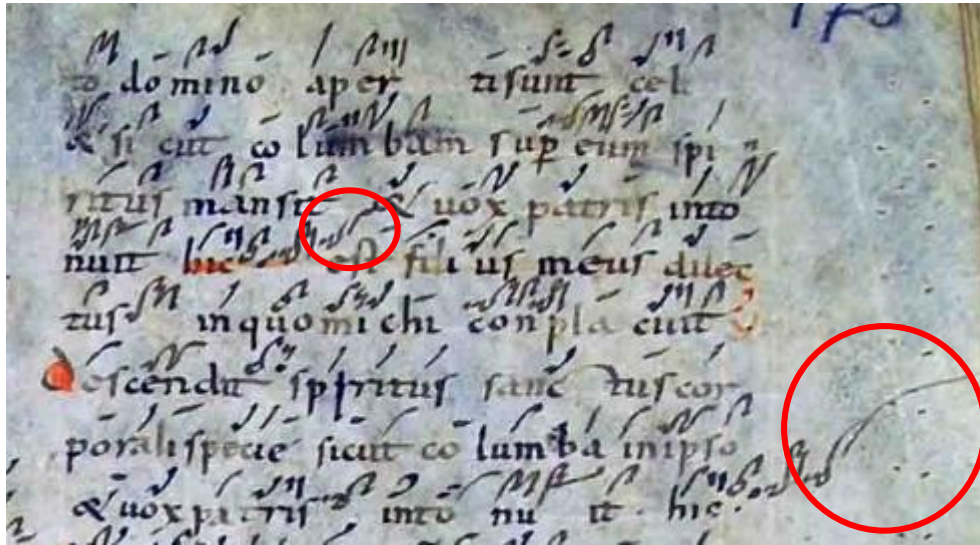 to domino aper ti sunt celi
& si cut co lum bam sup eum spi
ritus mansit & uox patris into
nuit hic est fili us meus dilec
tus in quo mi chi con pla cuit
Descendit spiritus sanc tus cor
porali specie sicut co lumba in ipso
& uox patris into nu it · hic ·